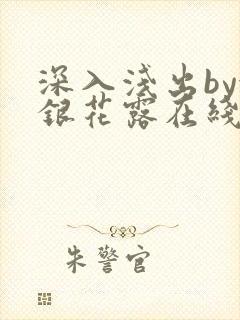 深入浅出by
銀花露在綫
朱警官